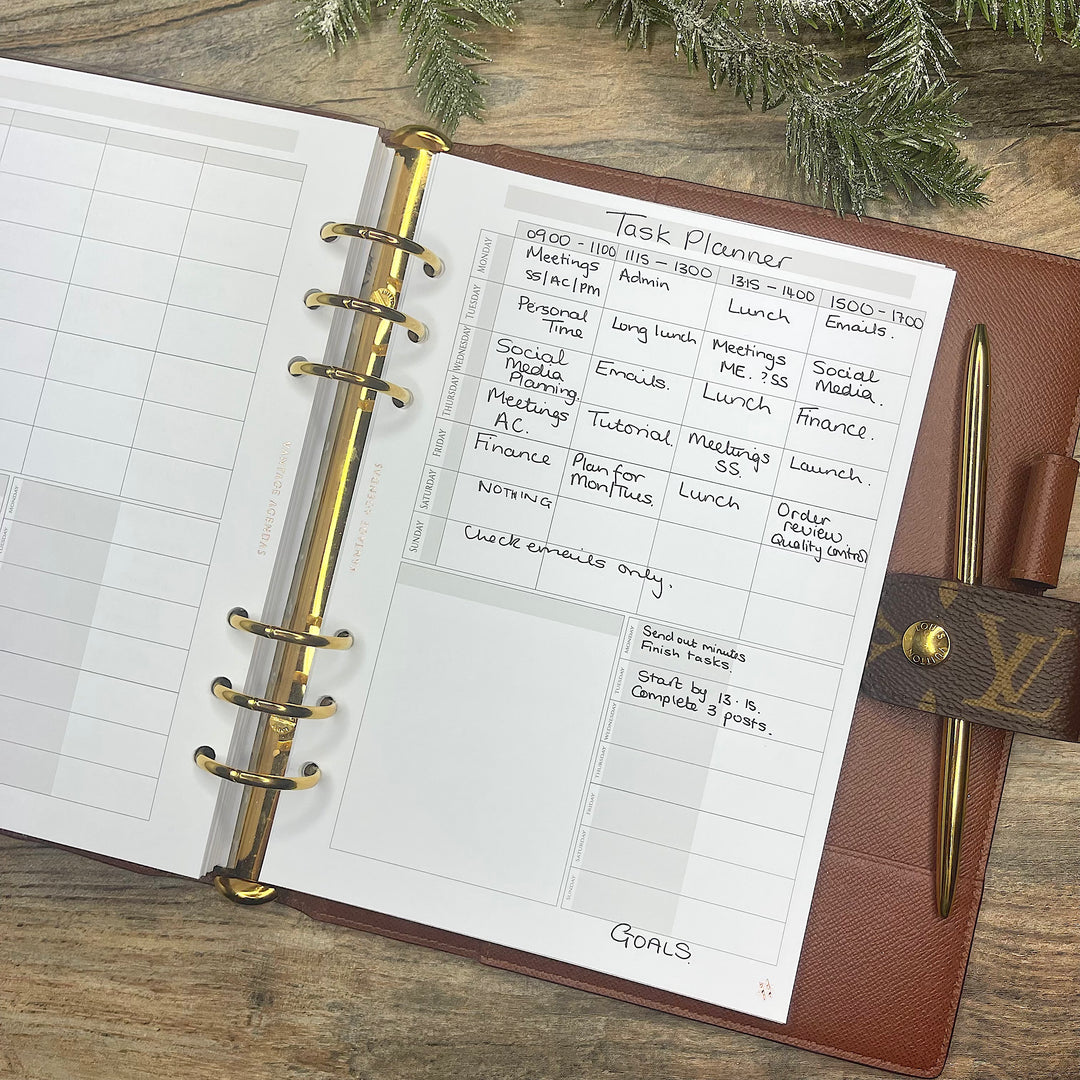 Task Planner
0900 - 1100 1115 - 1300 1315 - 1400 1500 - 1700
MONDAY
Meetings
SS/AC/PM
Admin
Lunch
Emails.
TUESDAY
Personal
Time
Long lunch
Meetings
ME. ?SS
Social
Media.
WEDNESDAY
Social
Media
Planning.
Emails.
Lunch
Finance.
THURSDAY
Meetings
AC.
Tutorial.
Meetings
SS.
Launch.
FRIDAY
Finance
Plan for
Mon/Tues.
Lunch
Order
review
Quality Control
SATURDAY
NOTHING
SUNDAY
Check emails only.
MONDAY
Send out minutes
Finish tasks.
TUESDAY
Start by 13.15.
Complete 3 posts.
WEDNESDAY
THURSDAY
FRIDAY
SATURDAY
SUNDAY
GOALS.
LOUIS VUITTON
LV
MONDAY
TUESDAY